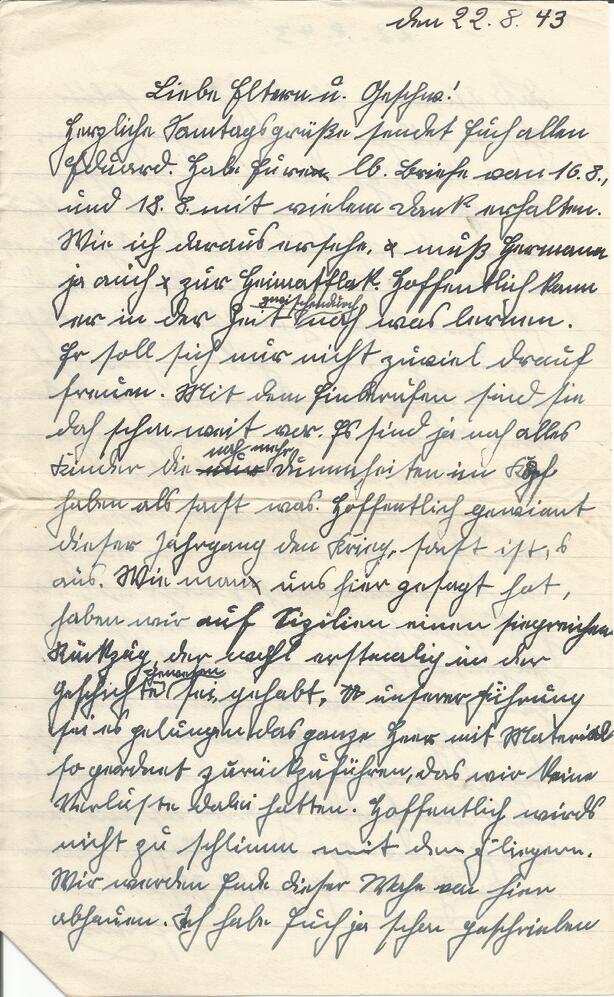 den 22. 8. 43
Liebe Eltern u. Geschw!
Herzliche Sonntagsgrüße sendet Euch allen
Eduard. Habe Euren lb. Briefe von 16. 8.,
und 18. 8. mit vielem Dank erhalten.
Wie ich daraus ersehe, muß Hermann
ja auch zur Heimatflak. Hoffentlich kann
er in der Zeit zwischendurch noch was lernen.
Er soll sich nur nicht zuviel drauf
freuen. Mit dem Einberufen sind sie
doch schon weit vor. Es sind ja noch alles
Kinder die noch mehr Dummheiten im Kopf
haben als sonst was. Hoffentlich gewinnt
dieser Jahrgang den Krieg, sonst ist's
aus. Wie man uns hier gesagt hat,
haben wir auf Sizilien einen siegreichen
Rückzug, der wohl erstmalig in der
Geschichte gewesen sei, gehabt. unserer Führung
sei es gelungen das ganze Heer mit Material
so geordnet zurückzuführen, das wir keine
Verluste dabei hatten. Hoffentlich wirds
nicht zu schlimm mit den Fliegern.
Wir werden Ende dieser Woche von hier
abhauen. Ich habe Euch ja schon geschrieben